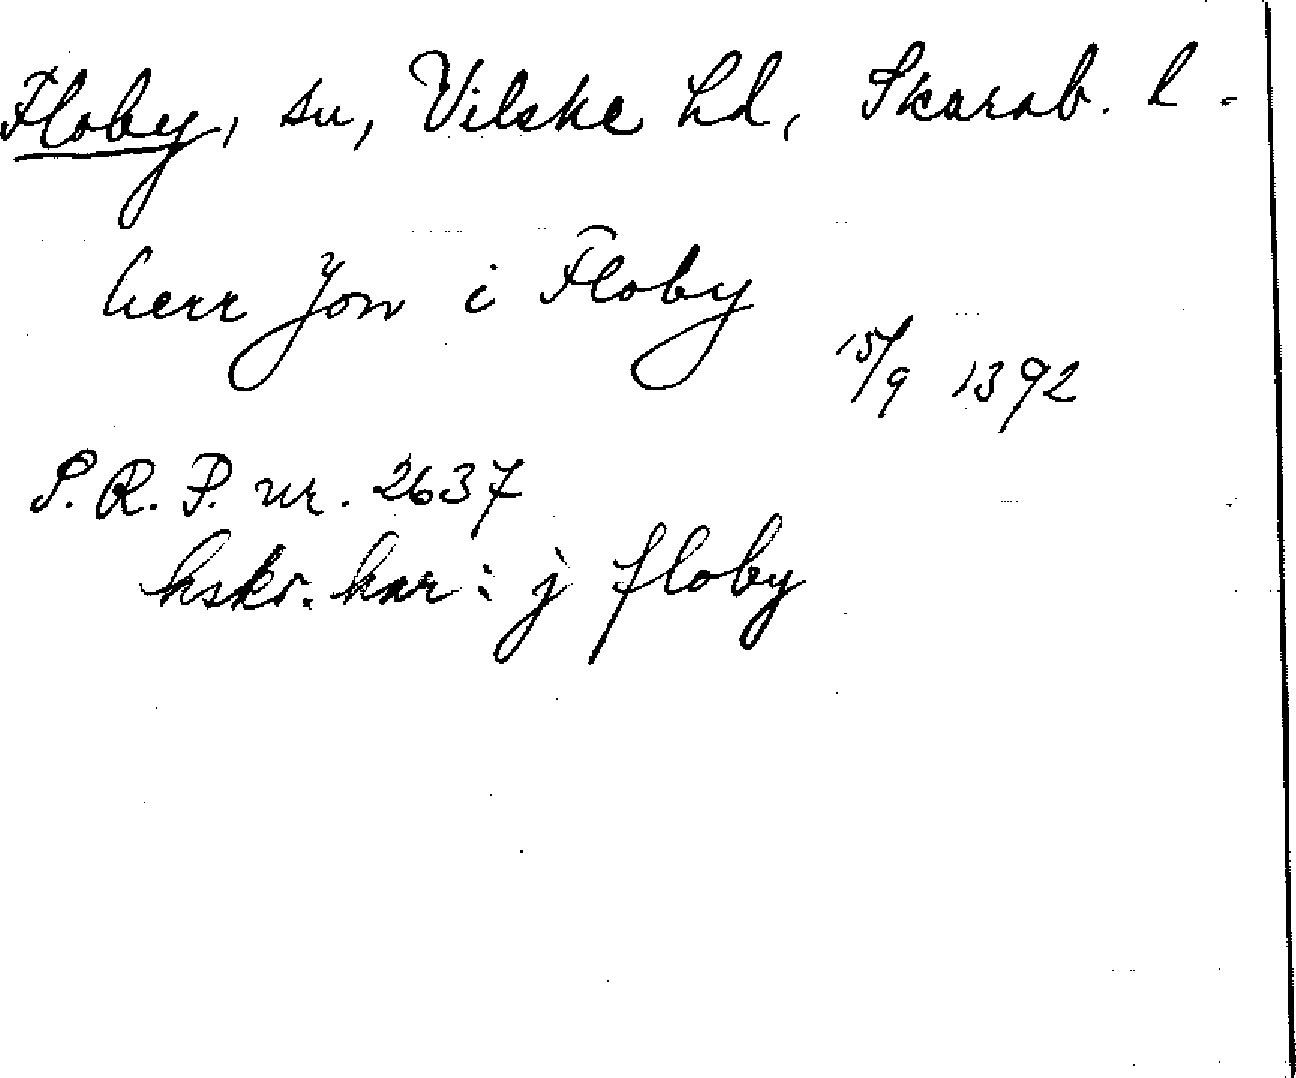 Floby, sn, Vilske hd, Skarab. l.
herr Jon i Floby
15/9 1392
S.R.P. nr. 2637
hskr. har: j floby